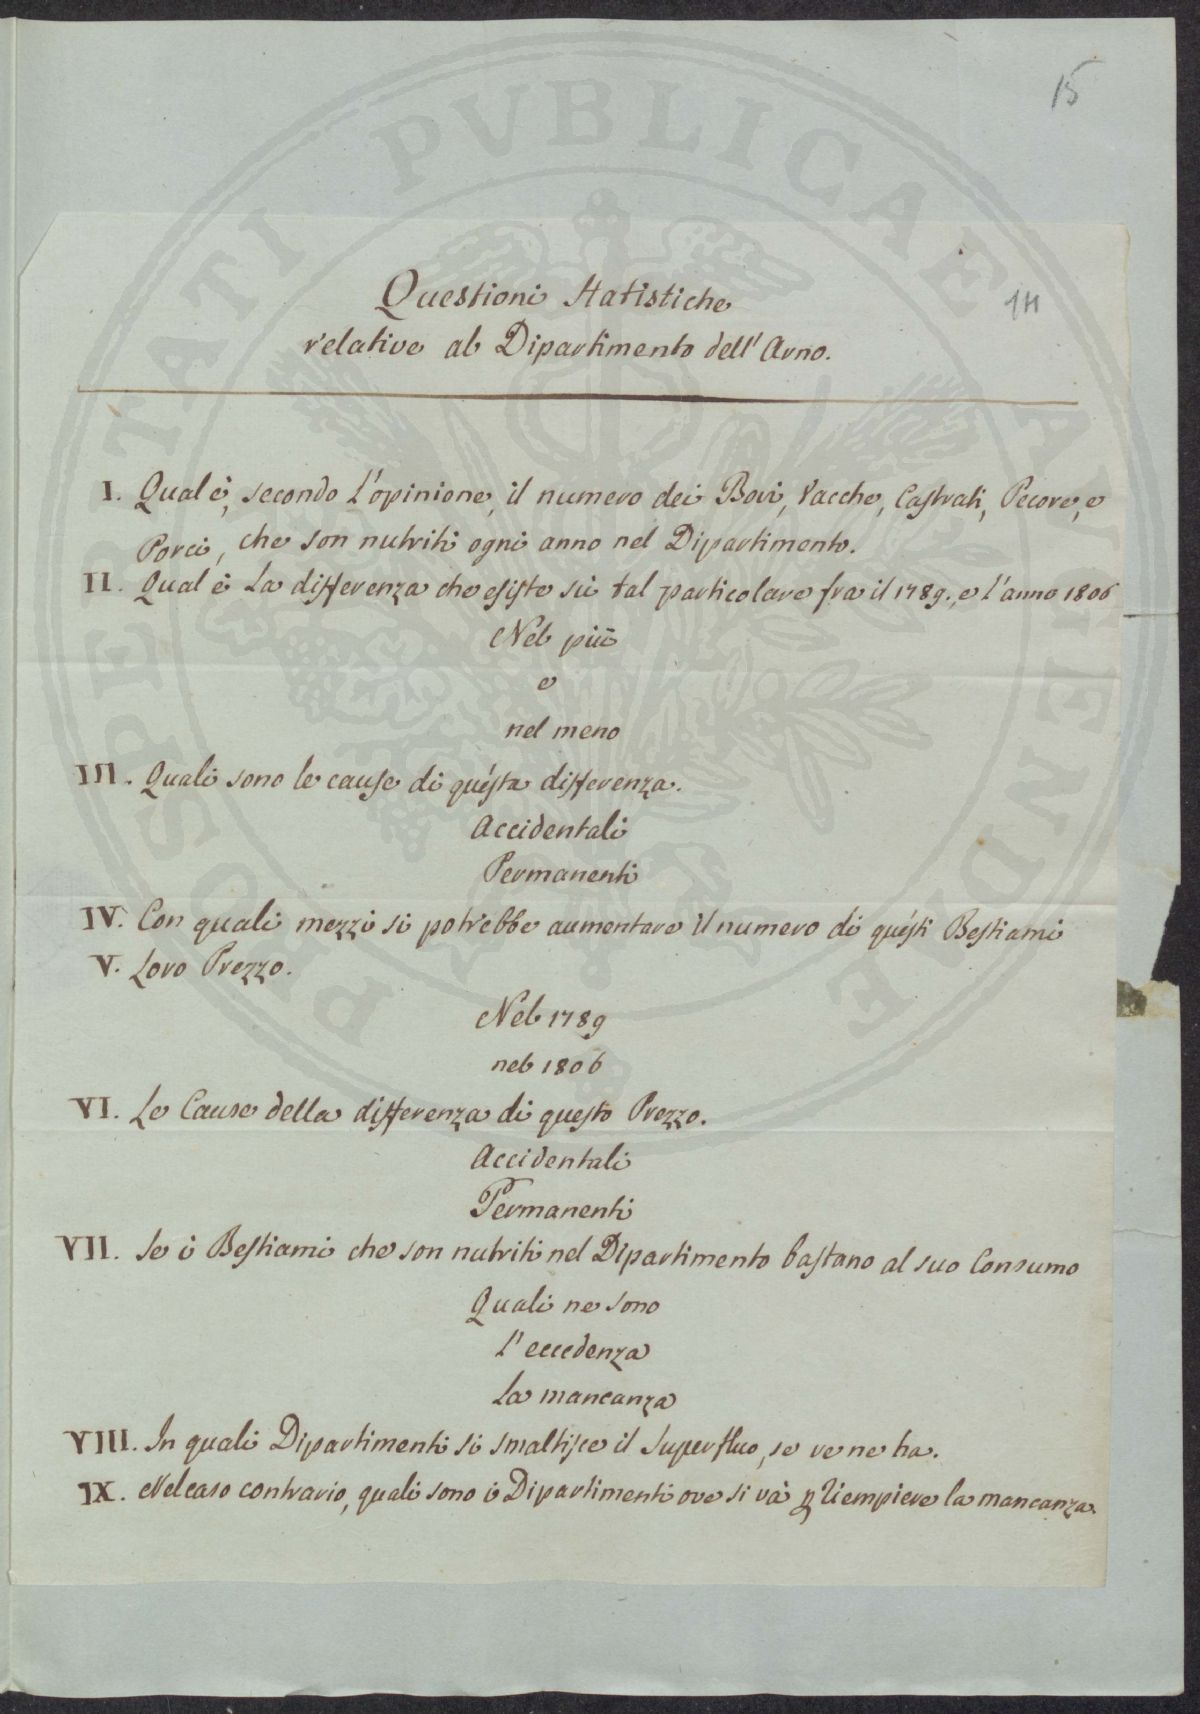 15
Questioni Statistiche
14
relative al Dipartimento dell' Arno.
I. Qual è, secondo l'opinione, il numero dei Bovi, Vacche, Castrati, Pecore, e
Porci, che son nutriti ogni anno nel Dipartimento.
II. Qual è la differenza che esiste sù tal particolare fra il 1789., e l'anno 1806
Nel più
e
nel meno
III. Quali sono le cause di questa differenza.
Accidentali
Permanenti
IV. Con quali mezzi si potrebbe aumentare il numero di questi Bestiami
V. Loro Prezzo.
Nel 1789
nel 1806
VI. Le Cause della differenza di questo Prezzo.
Accidentali
Permanenti
VII. Se i Bestiami che son nutriti nel Dipartimento bastano al suo Consumo
Quali ne sono
l'eccedenza
La mancanza
VIII. In quali Dipartimenti si smaltisce il Superfluo, se ve ne ha.
IX. Nel caso contrario, quali sono i Dipartimenti ove si và p riempiere la mancanza.
PROSPERITATI PVBLICAE AVGENDAE